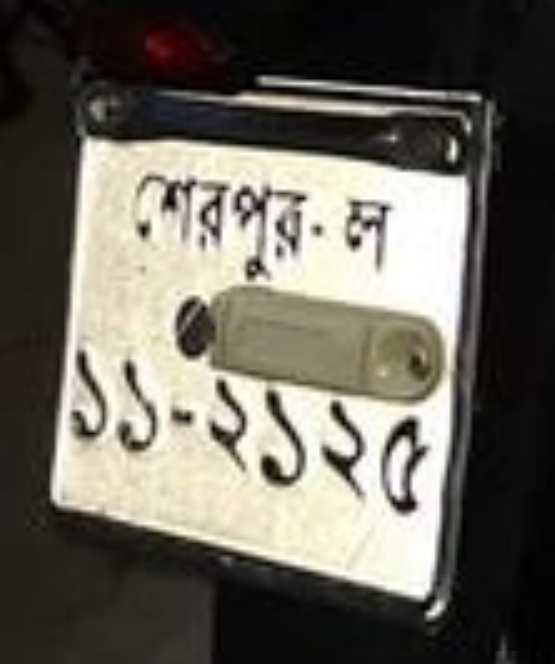 শেরপুর-ল
১১-২১২৫